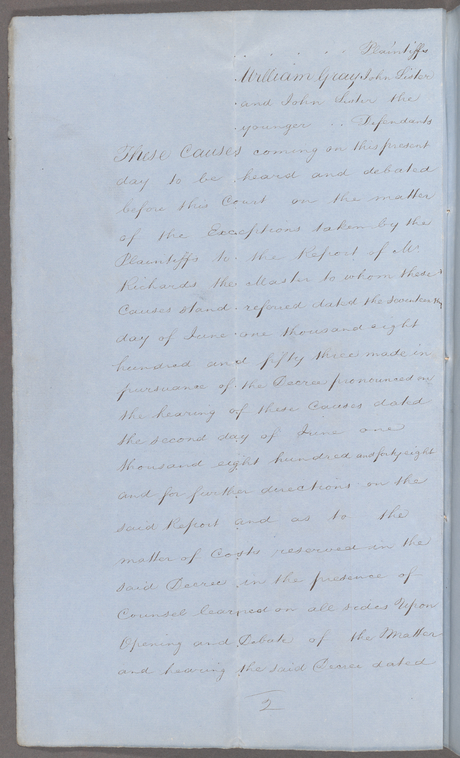 . . . . . . . Plaintiffs
William Gray John Lister
and John Lister the
younger . . Defendants
These Causes coming on this present
day to be heard and debated
before this Court on the matter
of the Exceptions taken by the
Plaintiffs to the Report of Mr
Richards the Master to whom these
Causes stand referred dated the seventeenth
day of June one thousand eight
hundred and fifty three made in
pursuance of the Decree pronounced on
the hearing of these Causes dated
the second day of June one
thousand eight hundred and forty eight
and for further directions on the
said Report and as to the
matter of Costs reserved in the
said Decree in the presence of
Counsel learned on all sides Upon
Opening and Debate of the Matter
and hearing the said Decree dated
2